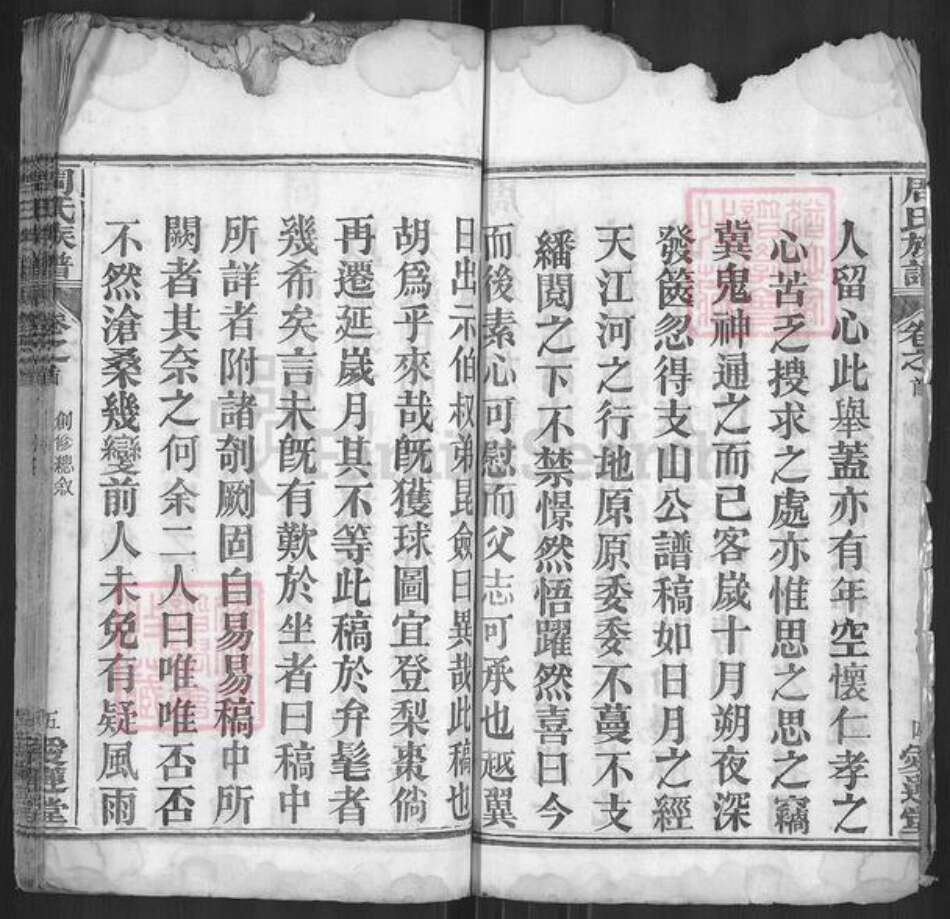 周氏族譜 卷之首 四 愛蓮堂
人留心此舉蓋亦有年空懷仁孝之
心苦乏搜求之處亦惟思之思之竊
冀鬼神通之而已客歲十月朔夜深
發篋忽得支山公譜稿如日月之經
天江河之行地原原委委不蔓不支
繙閱之下不禁憬然悟躍然喜曰今
而後素心可慰而父志可承也越翼
日出示伯叔弟昆僉曰異哉此稿也
胡爲乎來哉旣獲球圖宜登梨棗倘
再遷延歲月其不等此稿於弁髦者
幾希矣言未旣有歎於坐者曰稿中
所詳者附諸剞劂固自易易稿中所
闕者其奈之何余二人曰唯唯否否
不然滄桑幾變前人未免有疑風雨
周氏族譜 卷之首 創修總敘 五 愛蓮堂